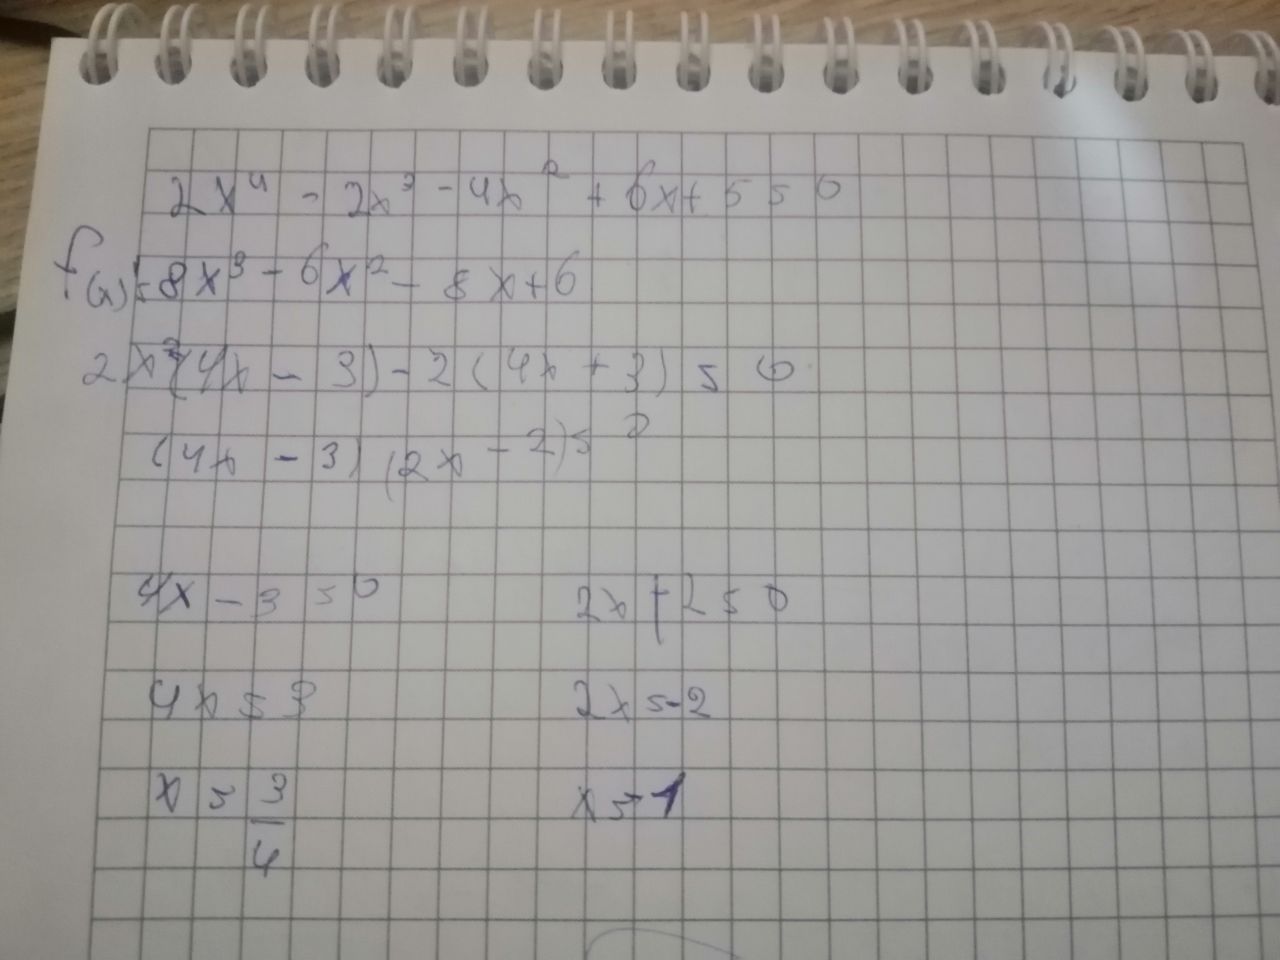 2x⁴ - 2x³ - 4x² + 6x + 5 = 0
f'(x) = 8x³ - 6x² - 8x + 6
2x²(4x - 3) - 2(4x + 3) = 0
(4x - 3)(2x - 2) = 0
4x - 3 = 0 2x + 2 = 0
4x = 3 2x = -2
x = 3/4 x = -1